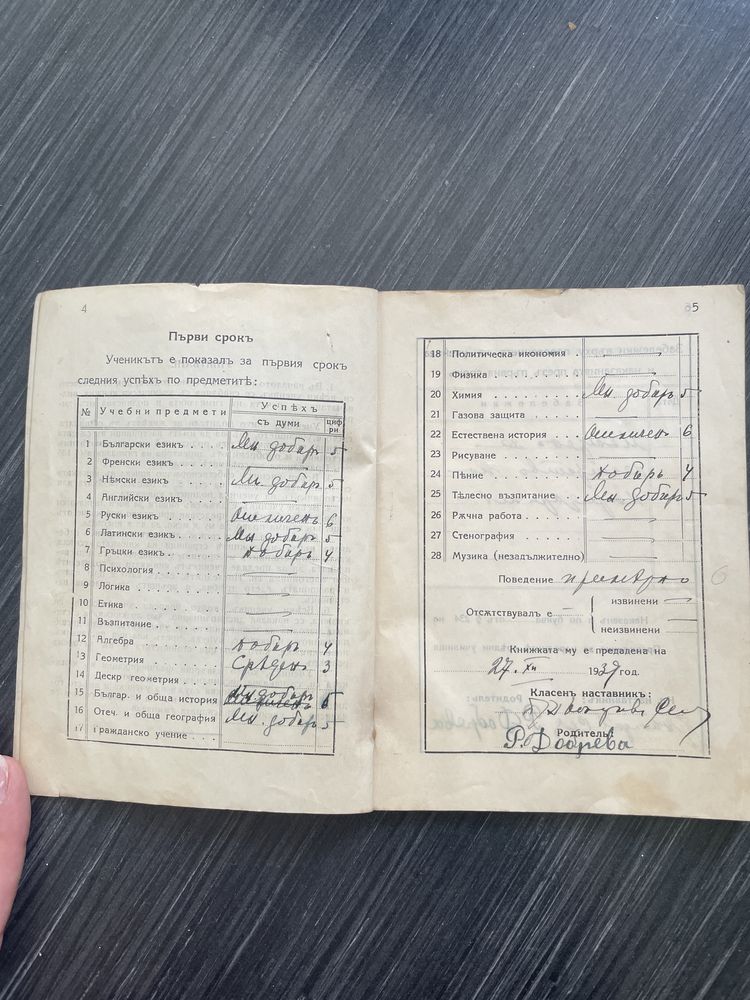 4
Първи срокъ
Ученикътъ е показалъ за първия срокъ
следния успѣхъ по предметитѣ:
№ Учебни предмети Успѣхъ
съ думи цифри
1 Български езикъ Мн. добъръ 5
2 Френски езикъ
3 Нѣмски езикъ Мн. добъръ 5
4 Английски езикъ
5 Руски езикъ Отличенъ 6
6 Латински езикъ Мн. добъръ 5
7 Гръцки езикъ Добъръ 4
8 Психология
9 Логика
10 Етика
11 Възпитание
12 Алгебра Добъръ 4
13 Геометрия Срѣденъ 3
14 Дескр геометрия
15 Българ. и обща история Мн. добъръ 5
16 Отеч. и обща география Мн. добъръ 5
17 Гражданско учение
5
18 Политическа икономия
19 Физика
20 Химия Мн. добъръ 5
21 Газова защита
22 Естествена история Отличенъ 6
23 Рисуване
24 Пѣние Добъръ 4
25 Тѣлесно възпитание Мн. добъръ 5
26 Рѫчна работа
27 Стенография
28 Музика (незадължително)
Поведение примѣрно 6
Отсѫтствувалъ е
извинени
неизвинени
Книжката му е предадена на
27. XII 1939 год.
Класенъ наставникъ:
Родитель:
Р. Добрева